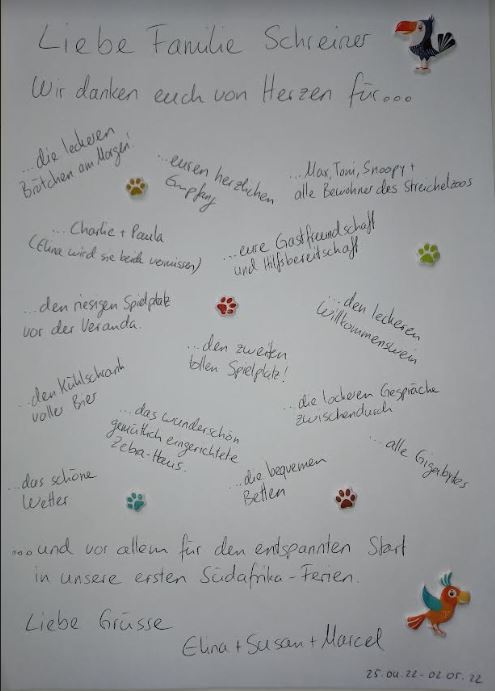 Liebe Familie Schreiner
Wir danken euch von Herzen für...
...die leckeren
Brötchen am Morgen!
...euren herzlichen
Empfang
...Max, Toni, Snoopy +
alle Bewohner des Streichelzoos
...Charlie + Paula
(Elina wird sie beide vermissen)
...eure Gastfreundschaft
und Hilfsbereitschaft
...den riesigen Spielplatz
vor der Veranda.
...den leckeren
Willkommenswein
...den zweiten
tollen Spielplatz!
...den Kühlschrank
voller Bier
...die lockeren Gespräche
zwischendurch
...das wunderschön
gemütlich eingerichtete
Zebra-Haus.
...alle Gigabytes
...das schöne
Wetter
...die bequemen
Betten
...und vor allem für den entspannten Start
in unsere ersten Südafrika-Ferien.
Liebe Grüsse
Elina + Susan + Marcel
25.04.22-02.05.22